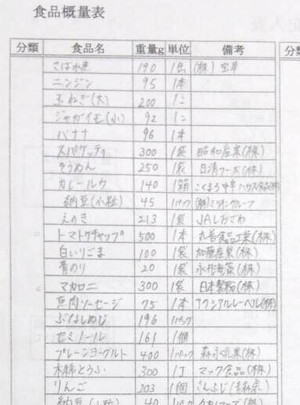 食品概量表
分類 食品名 重量g 単位 備考
さば水煮 190 1缶 (株)宝幸
ニンジン 95 1本
玉ねぎ(大) 200 1コ
ジャガイモ(小) 92 1コ
バナナ 96 1本
スパゲッティ 300 1袋 昭和産業(株)
そうめん 250 1袋 日清フーズ(株)
カレールウ 140 1箱 こくまろ中辛 ハウス食品(株)
納豆(小粒) 45 1パック (株)ミツカングループ
えのき 213 1袋 JAしおざわ
トマトケチャップ 500 1本 (株)
白いりごま 100 1袋 加藤産業(株)
青のり 20 1袋 (株)
マカロニ 300 1袋 日本製粉(株)
魚肉ソーセージ 75 1本 トップバリュ (株)
ぶなしめじ 196 1パック
セミノール 161 1個
プレーンヨーグルト 400 1パック 森永乳業(株)
木綿とうふ 300 1丁 マック食品(株)
りんご 203 1個 さんふじ
納豆 40 1パック